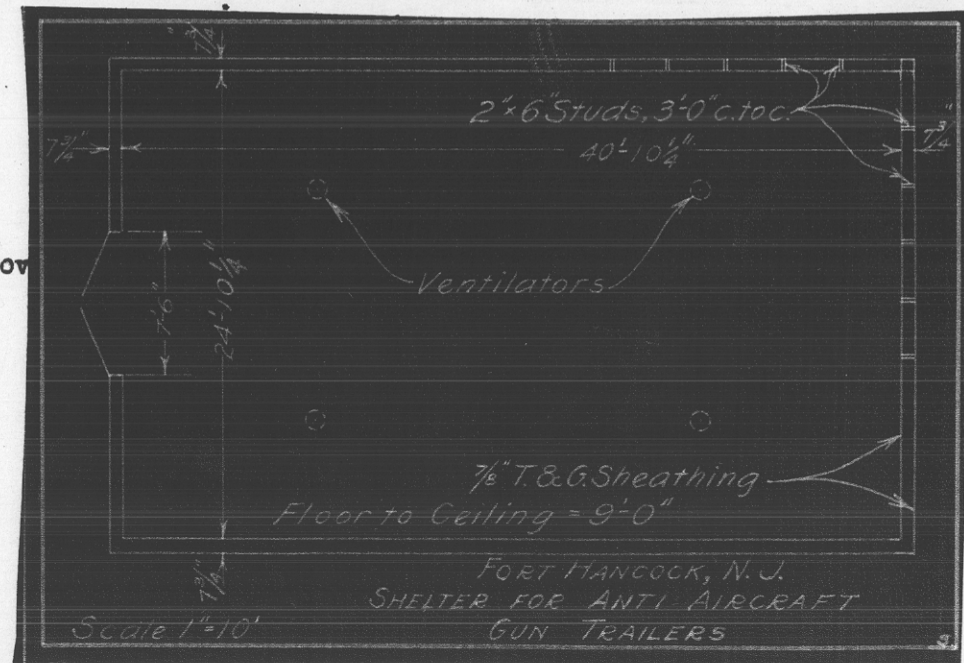 7 3/4"
2"x6" Studs, 3'-0" c.toc.
7 3/4"
40'-10 1/4"
7 3/4"
Ventilators
7'-6"
24'-10 1/2"
7/8" T.&G. Sheathing
Floor to Ceiling = 9'-0"
7 3/4"
FORT HANCOCK, N.J.
SHELTER FOR ANTI AIRCRAFT
GUN TRAILERS
Scale 1"=10'